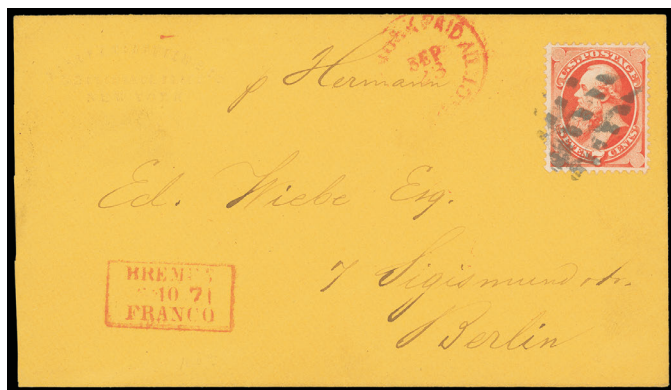 PAID ALL
SEP
U.S. POSTAGE
SEVEN CENTS
p Hermann
Ed. Wiebe Esq.
7 Sigismundstr.
Berlin
BREMEN
10 71
FRANCO